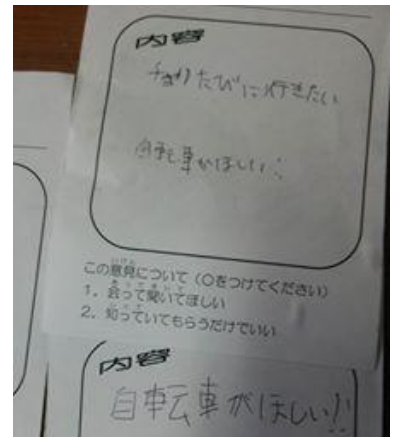 内容
たびに行きたい
自転車がほしい!!
この意見について（○をつけてください）
1. 会って聞いてほしい
2. 知っていてもらうだけでいい
内容
自転車がほしい!!